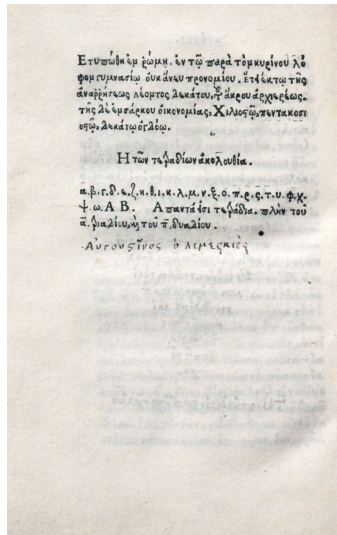 Ετυπώθη ἐμ ῥώμῃ. ἐν τῷ παρὰ τὸμ κυρίνου λό
φομ γυμνασίῳ οὐκ ἄνευ προνομίου. ἔτει ἕκτῳ τῆς
ἀναρρήσεως λέοντος δεκάτου, τοῦ ἄκρου ἀρχιερέως.
τῆς δὲ ἐμσάρκου οἰκονομίας. Χιλιοστῷ, πεντακοσι
οστῷ, δεκάτῳ ὀγδόῳ.
Η τῶν τετραδίων ἀκολουθία.
α. β. γ. δ. ε. ζ. η. θ. ι. κ. λ. μ. ν. ξ. ο. π. ρ. ς. τ. υ. φ. χ.
ψ. ω. Α Β. Απαντά εἰσι τετράδια. πλὴν τοῦ
α. τριαδίου, ἢ τοῦ π. δυαδίου.
Αὐγουστῖνος ὁ